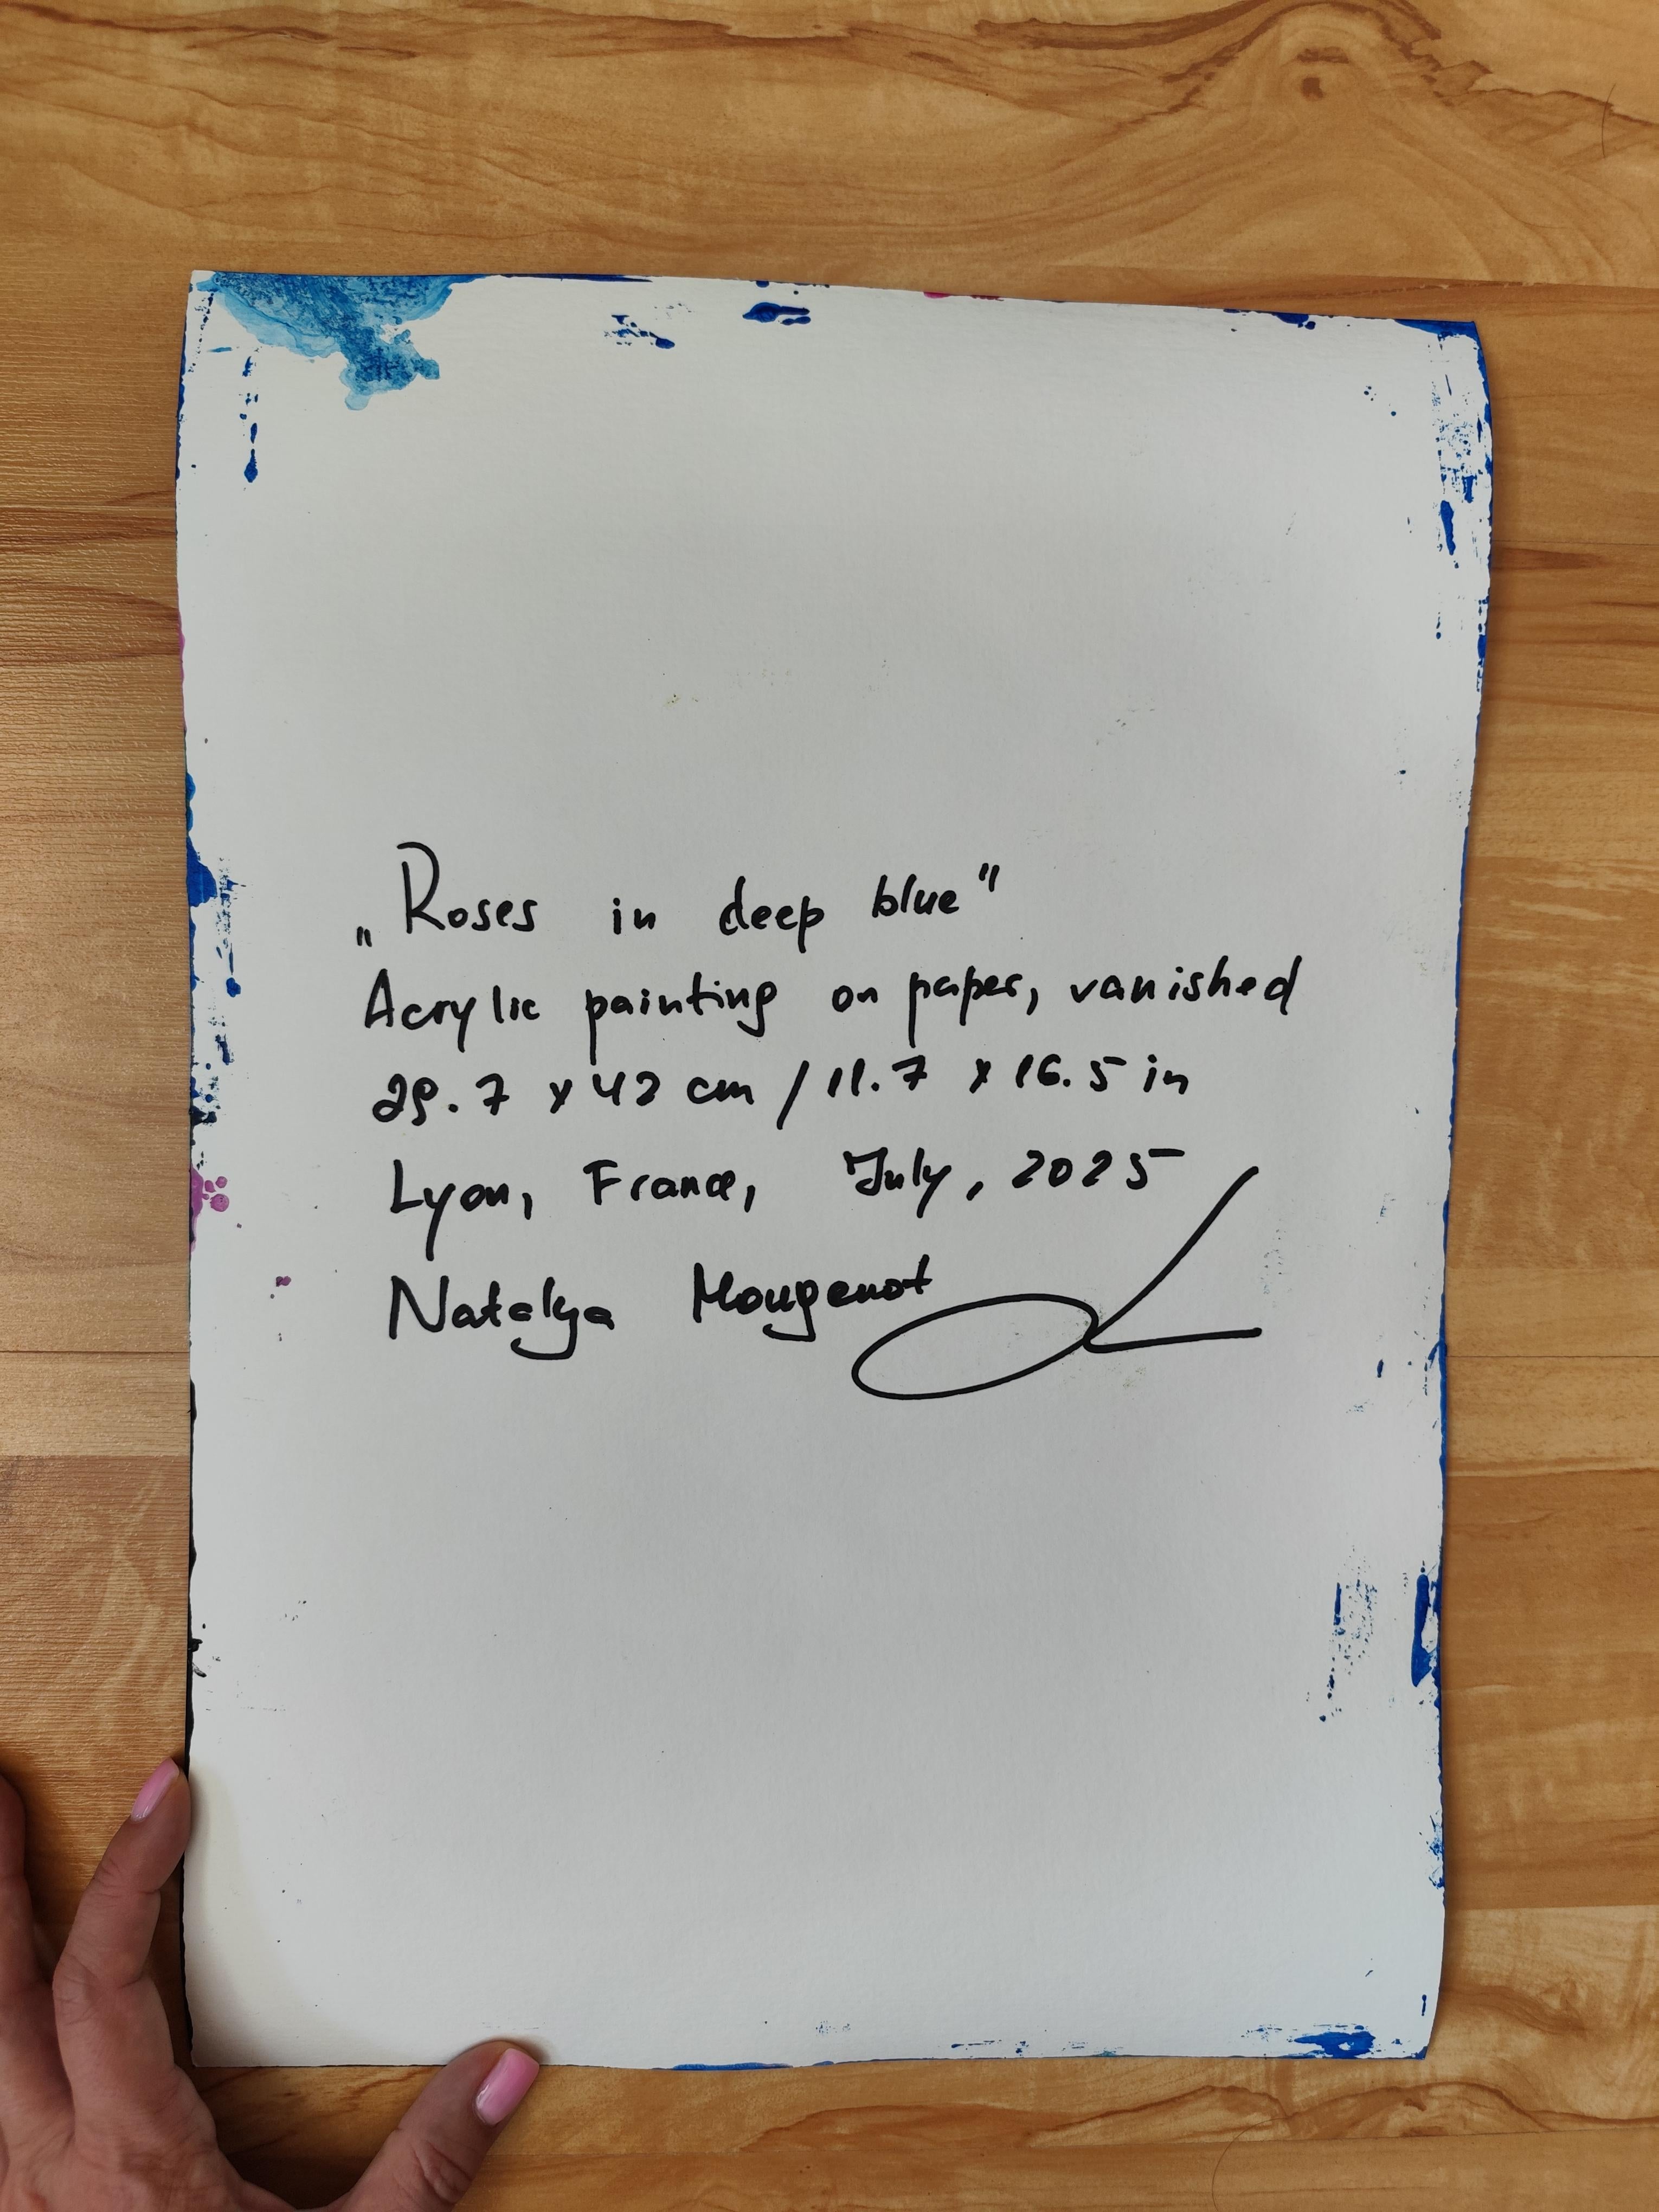 „Roses in deep blue"
Acrylic painting on paper, vanished
29.7 x 42 cm / 11.7 x 16.5 in
Lyon, France, July, 2025
Natalya Mougenot